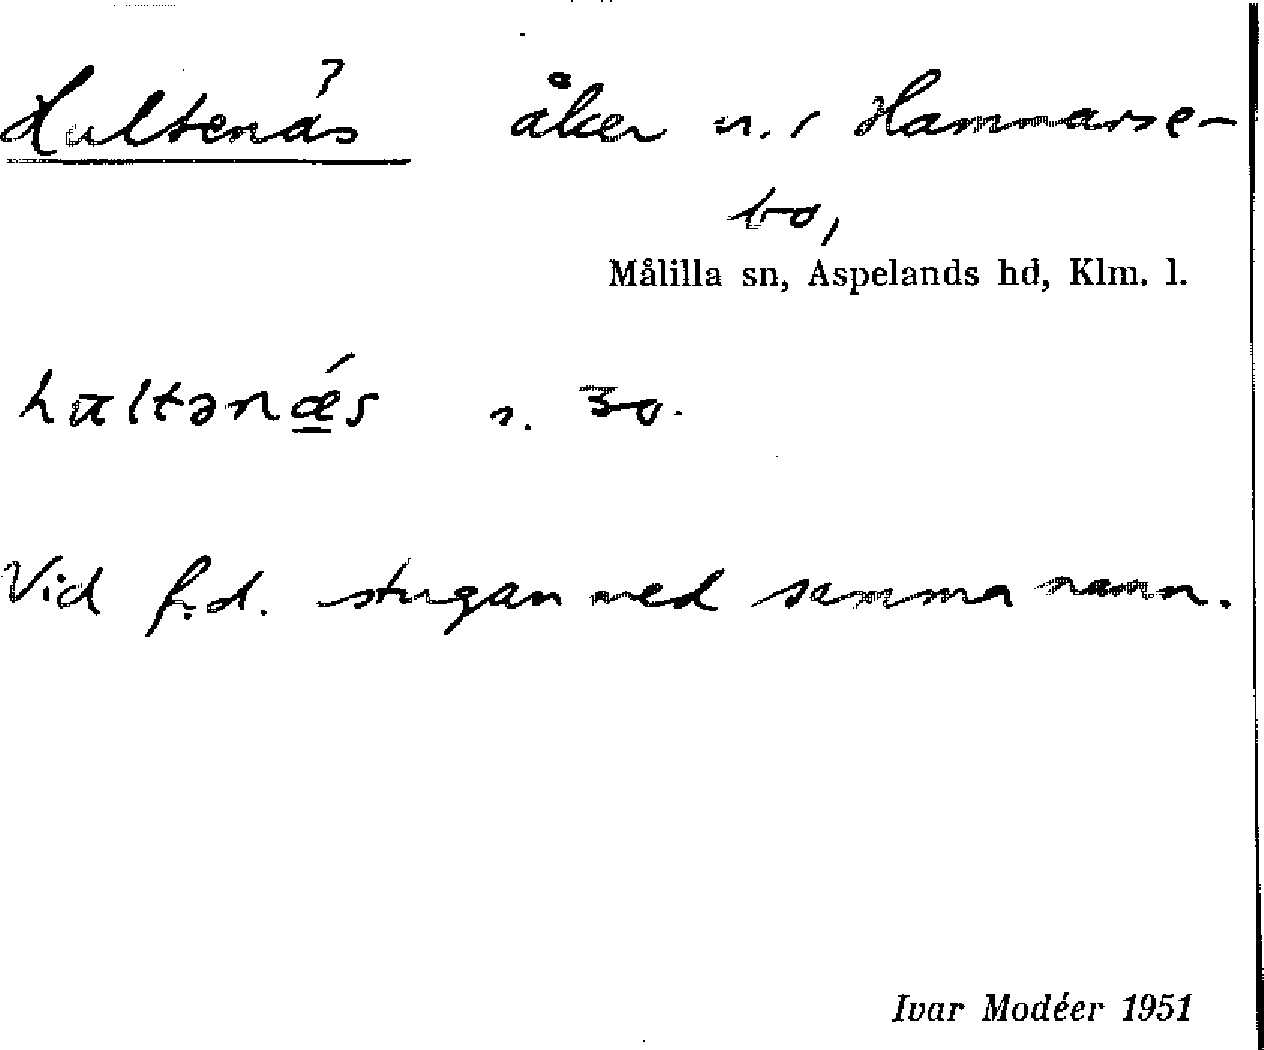 Hultenäs åker n. i Hammarse-
bo,
Målilla sn, Aspelands hd, Klm. l.
hultənǽs s. 30.
Vid f.d. stugan med samma namn.
Ivar Modéer 1951